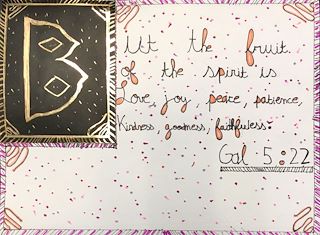 But the fruit
of the spirit is
Love, joy, peace, patience,
Kindness, goodness, faithfulness.
Gal 5:22